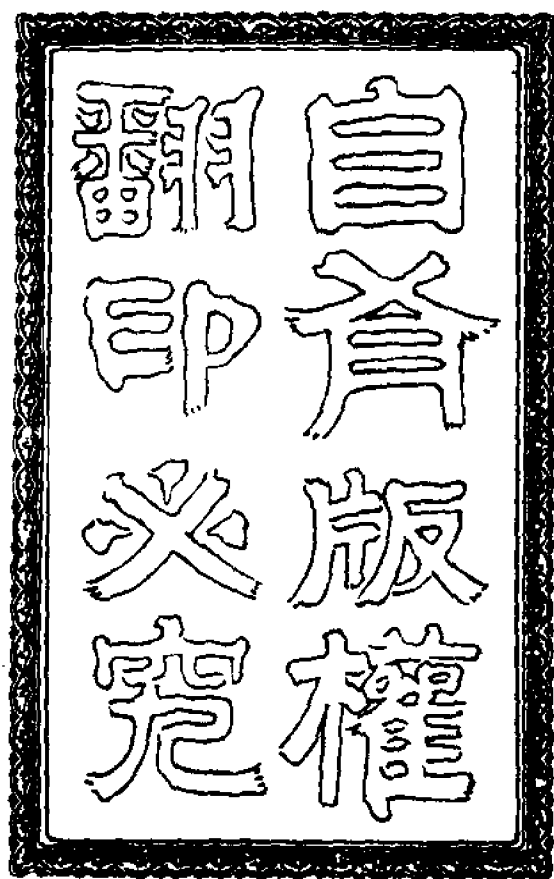 自肴版權
翻印必究